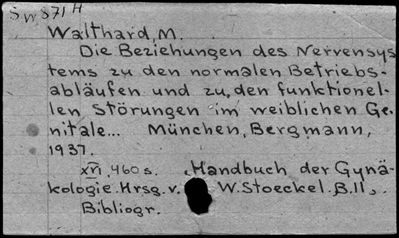 SW871H
Walthard, M.
Die Beziehungen des Nervensys
tems zu den normalen Betriebs-
abläufen und zu, den funktionel-
len Störungen im weiblichen Ge-
nitale... München, Bergmann,
1937.
XVI, 460 s. „Handbuch der Gynä-
kologie. Hrsg. v. W. Stoeckel. B. 11„.
Bibliogr.